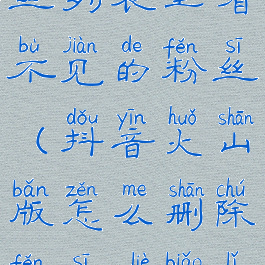 丝列表里看
bù jiàn de fěn sī
不见的粉丝
dǒu yīn huǒ shān
（抖音火山
bǎn zěn me shān chú
版怎么删除
fěn sī liè biǎo lǐ